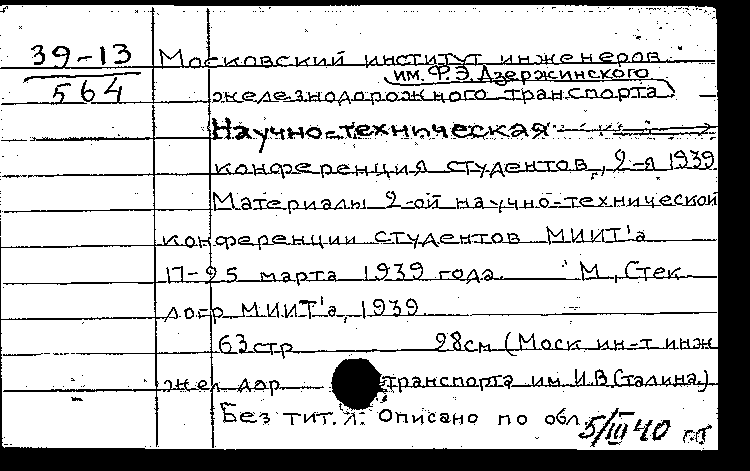 39-13
564
Московский институт инженеров
им. Ф.Э. Дзержинского
железнодорожного транспорта)
Научно-техническая
конференция студентов, 2-я 1939
Материалы 2-ой научно-технической
конференции студентов МИИТ'а
17-25 марта 1939 года. М, Стек
логр МИИТ'а, 1939
63 стр 28см (Моск ин-т инж
жел дор транспорта им. И.В. Сталина)
Без тит. л. Описано по обл.
5/III 40